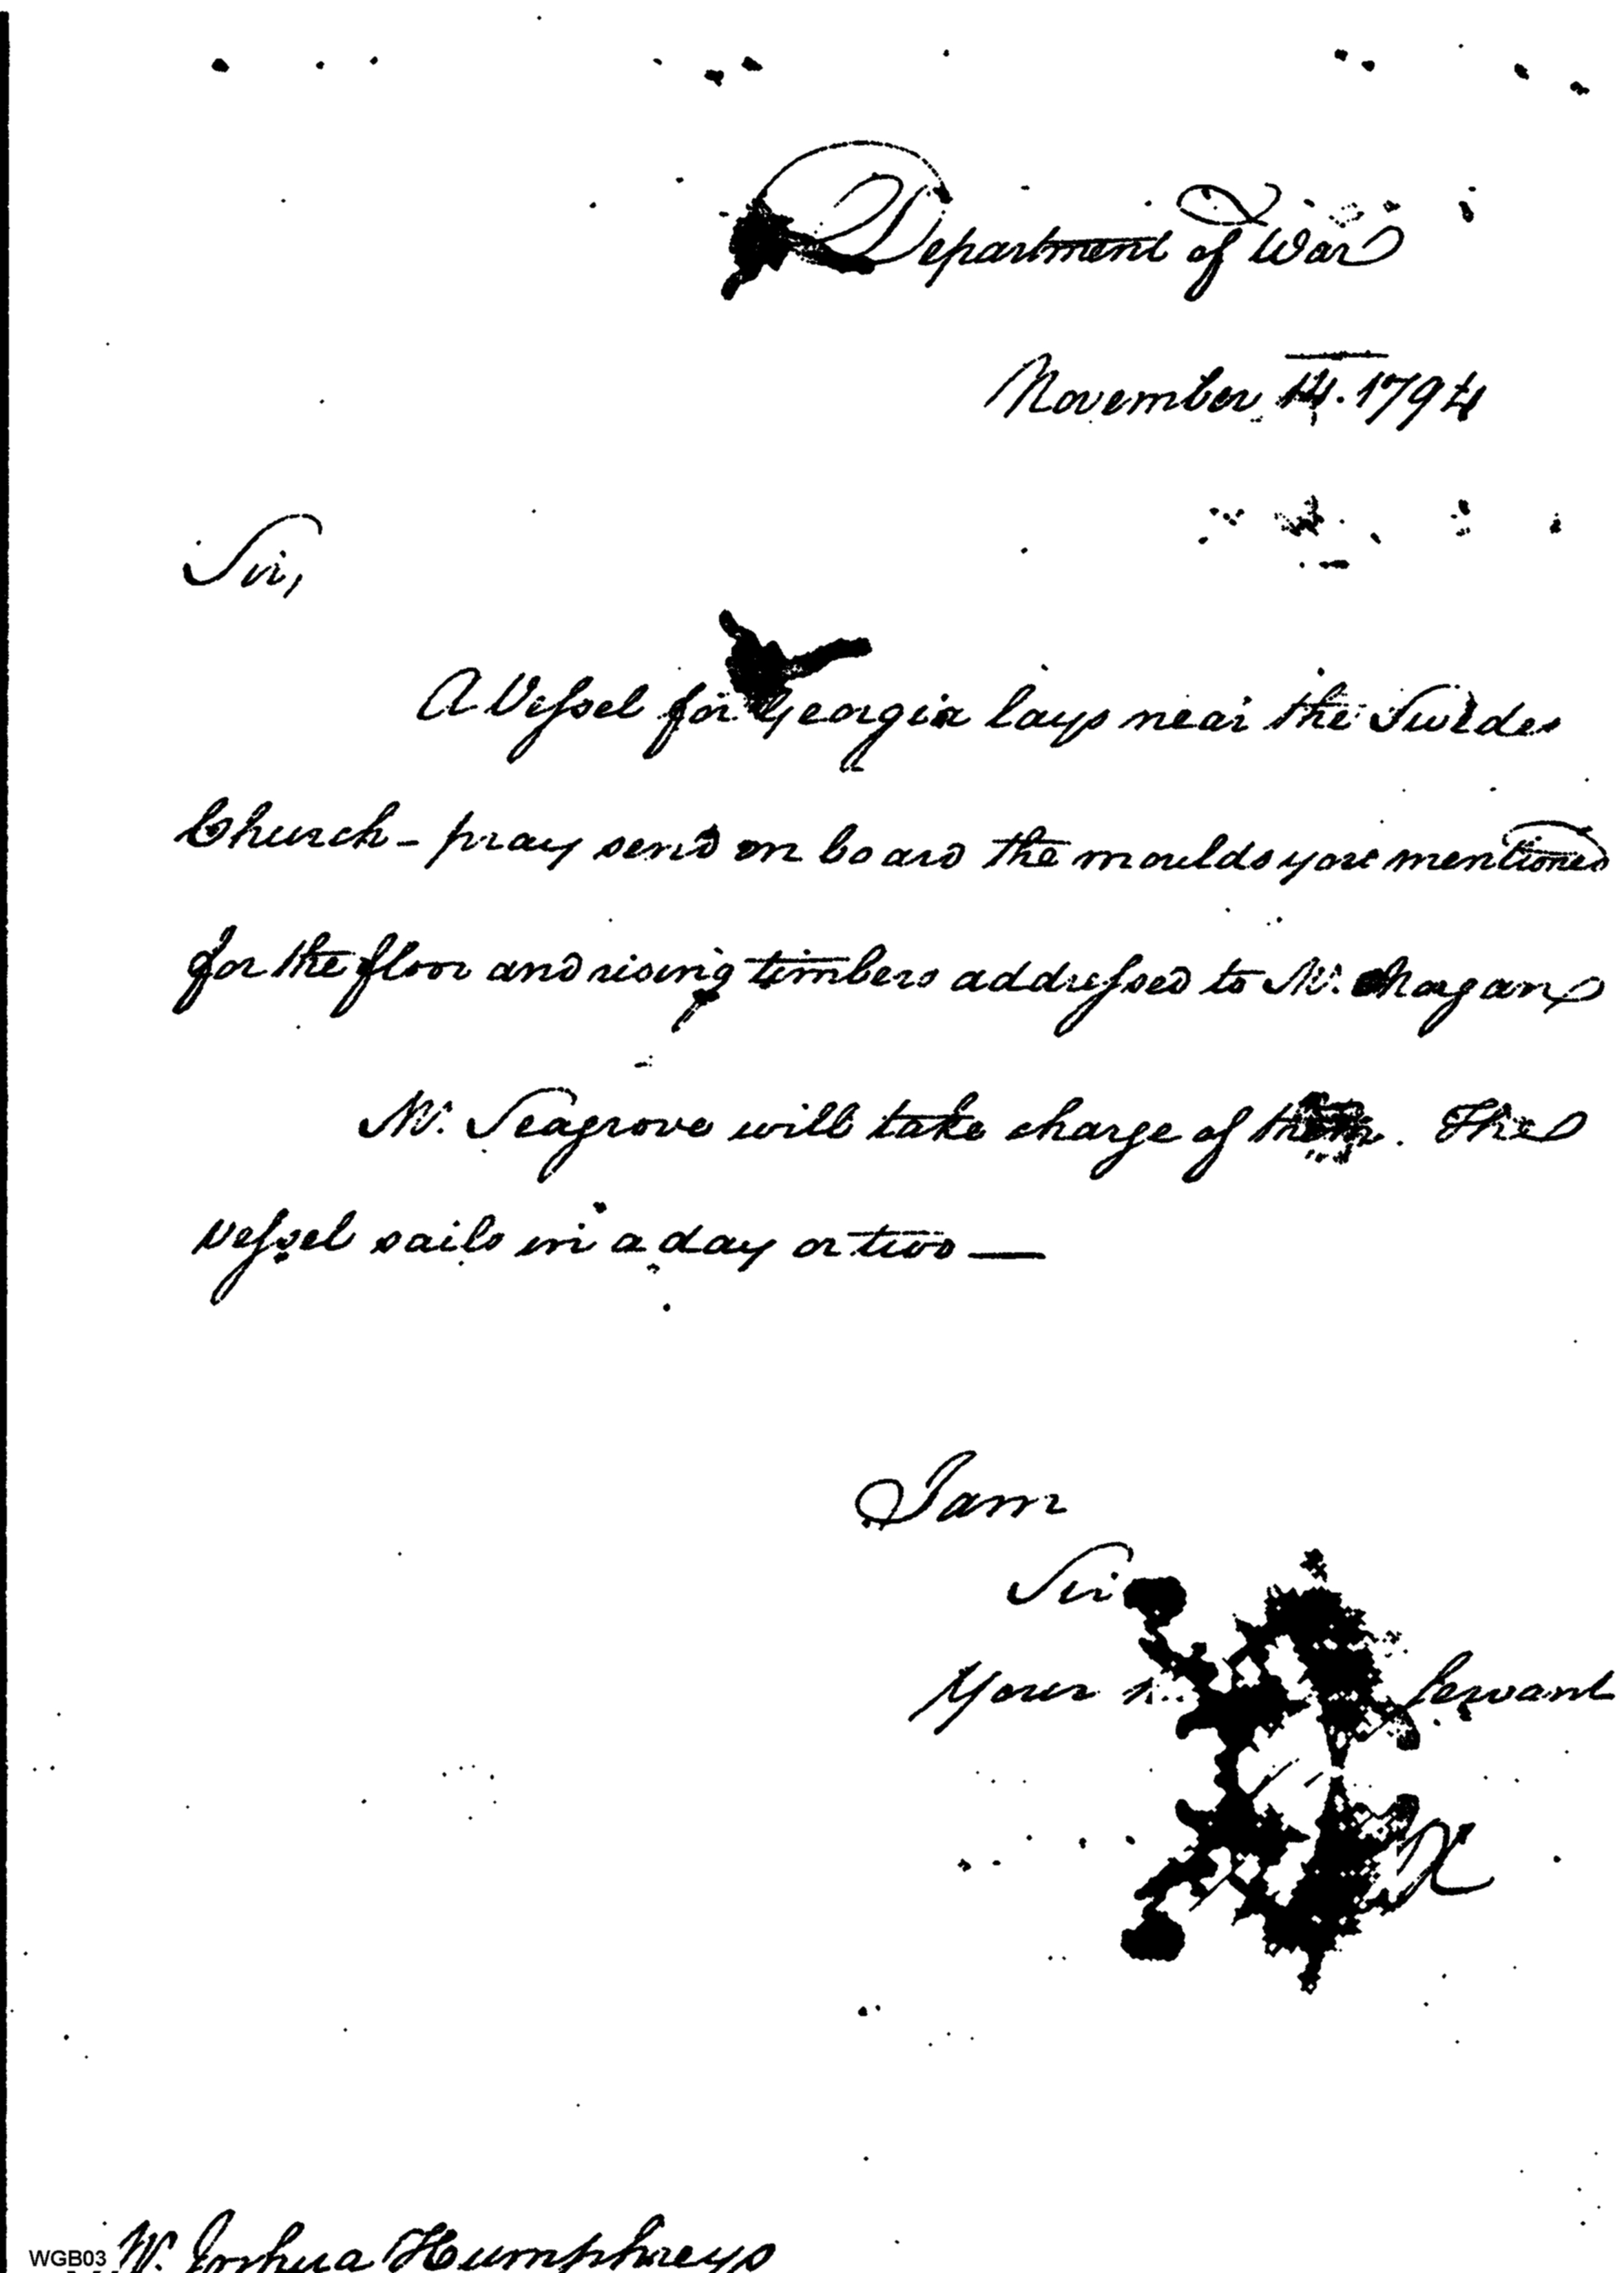 Department of War
November 14. 1794
Sir,
A Vessel for Georgia lays near the Swedes
Church - pray send on board the moulds you mentioned
for the floor and rising timbers addressed to Mr. Morgan
Mr. Seagrove will take charge of them. The
Vessel sails in a day or two —
I am
Sir
Your Servant
WGB03 Mr. Joshua Humphreys